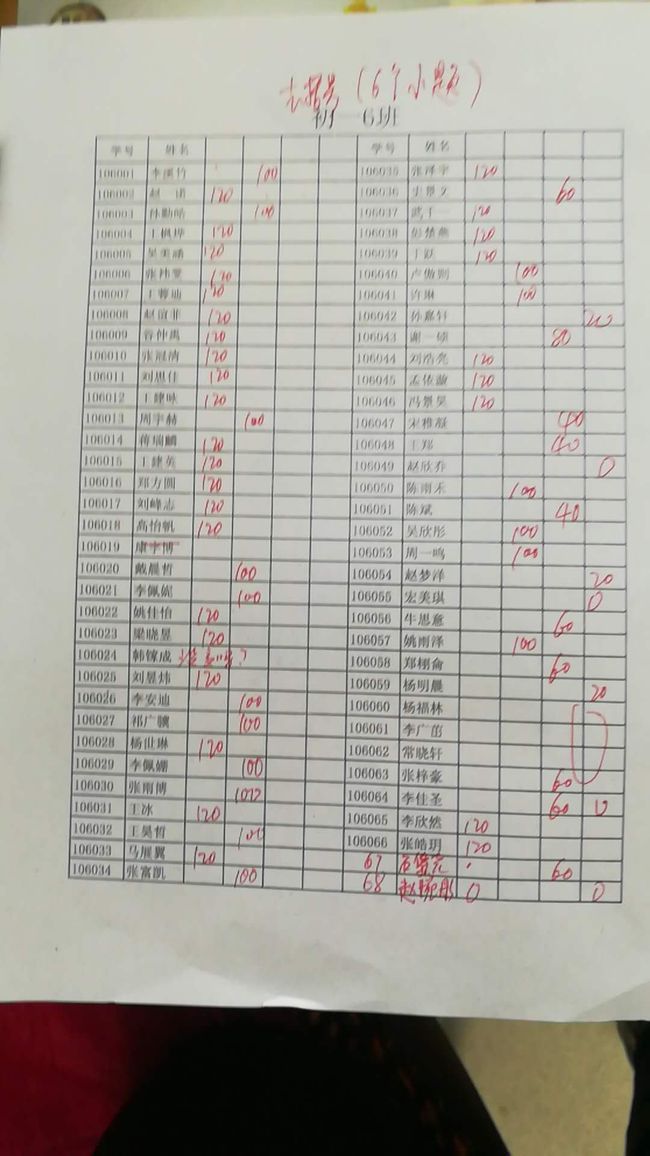 去括号(6个小题)
初一6班
学号 姓名 学号 姓名
106001 100 106035 张泽宇 120
106002 120 106036 60
106003 100 106037 120
106004 120 106038 120
106005 120 106039 120
106006 120 106040 100
106007 120 106041 许琳 100
106008 赵谊菲 120 106042 孙嘉轩 20
106009 120 106043 谢一硕 80
106010 张冠清 120 106044 刘浩亮 120
106011 刘思佳 120 106045 孟依 120
106012 王建 120 106046 冯景昊 120
106013 周宇赫 100 106047 宋雅凝 40
106014 蒋瑞麟 120 106048 王郑 40
106015 王建英 120 106049 赵欣乔 0
106016 郑方圆 120 106050 陈雨禾 100
106017 刘峰志 120 106051 陈斌 40
106018 高怡帆 120 106052 吴欣彤 100
106019 康宇博 106053 周一鸣 100
106020 戴晨哲 100 106054 赵梦洋 20
106021 李佩妮 100 106055 宏美琪 0
106022 姚佳怡 120 106056 牛思意 60
106023 梁晓昱 120 106057 姚雨泽 100
106024 韩镓成 ? 106058 郑栩俞 60
106025 刘昱炜 120 106059 杨明晨 20
106026 李安迪 100 106060 杨福林
106027 祁广骥 100 106061 李广茁
106028 杨世琳 120 106062 常晓轩
106029 李佩姗 100 106063 张梓豪 60
106030 张雨博 100 106064 李佳圣 60 0
106031 王冰 120 106065 李欣然 120
106032 王昊哲 100 106066 张皓玥 120
106033 马展翼 120 67 60
106034 张富凯 100 68 赵 彤 0 0